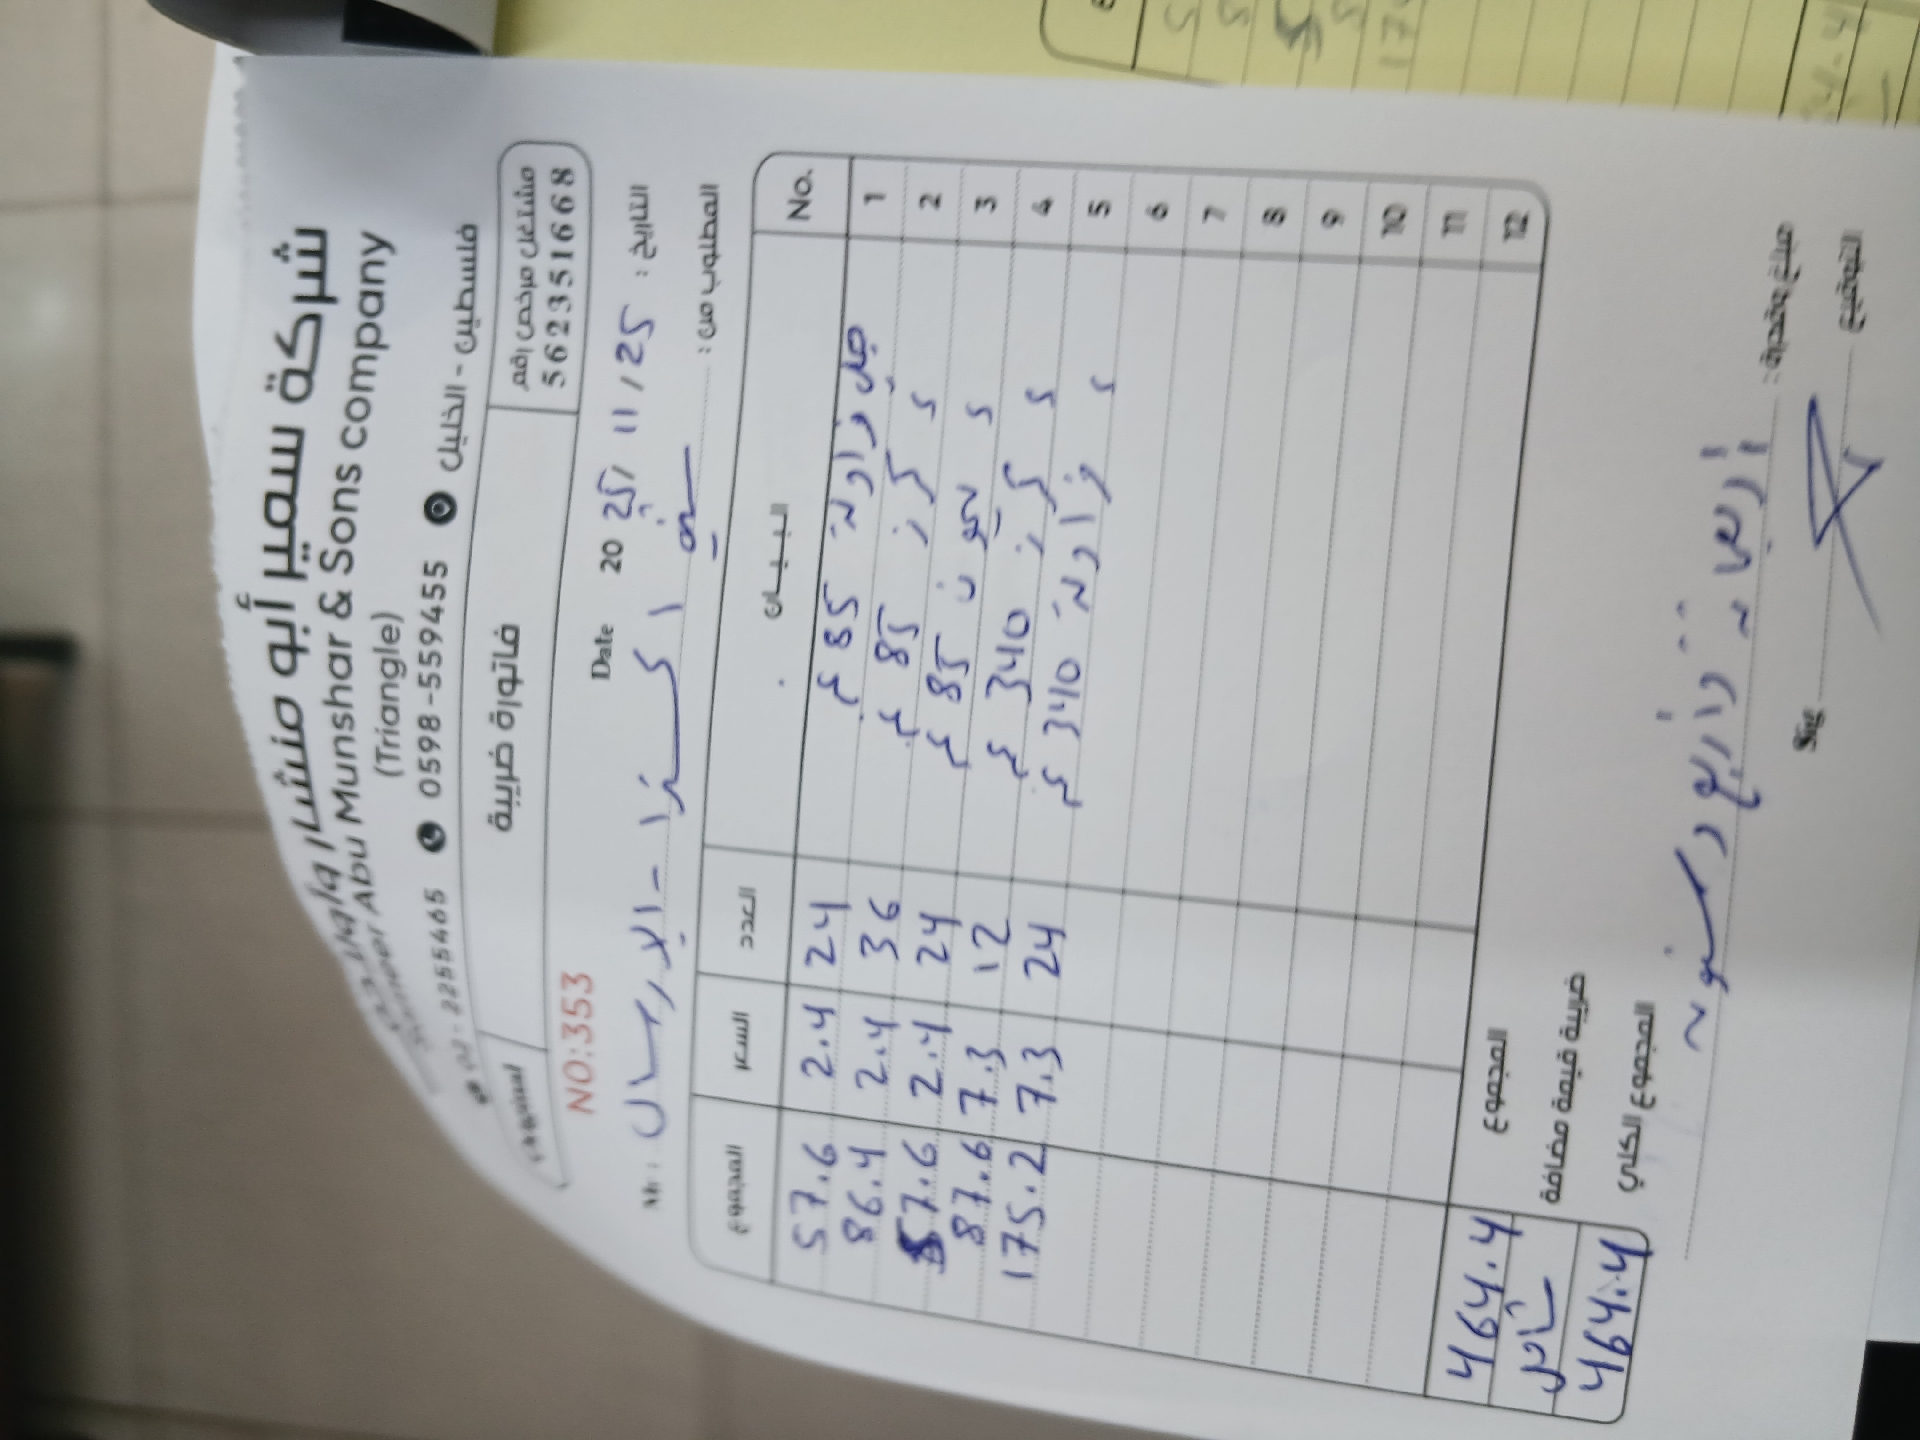 شركة سمير أبو منشار وأولاده
Sameer Abu Munshar & Sons company
(Triangle)
فلسطين - الخليل 0598-559455 02-2255465
مشتغل مرخص رقم
562351668
فاتورة ضريبة
NO:353
التاريخ : 25 / 11 / 2025 Date
المطلوب من : اكسترا - الارسال
No. البيان العدد السعر المجموع
1 جل فراولة 85 غ 24 2.4 57.6
2 = كرز 85 غ 36 2.4 86.4
3 = 85 غ 24 2.4 57.6
4 = كرز 340 غ 12 7.3 87.6
5 = فراولة 340 غ 24 7.3 175.2
6
7
8
9
10
11
12
المجموع 464.4
ضريبة قيمة مضافة شامل
المجموع الكلي 464.4
أربعماية وأربع وستون
التوقيع Sig